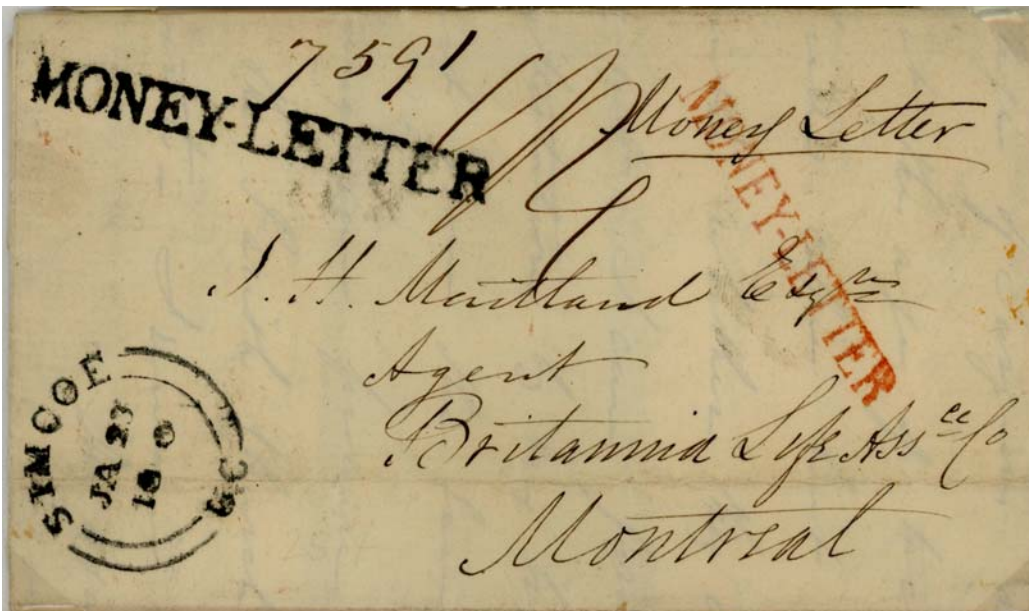 7591
MONEY-LETTER
Money Letter
MONEY-LETTER
J. H. Maitland Esqre
Agent
Britannia Life Assce Co
Montreal
SYMCOE
JA 23
18
U.C